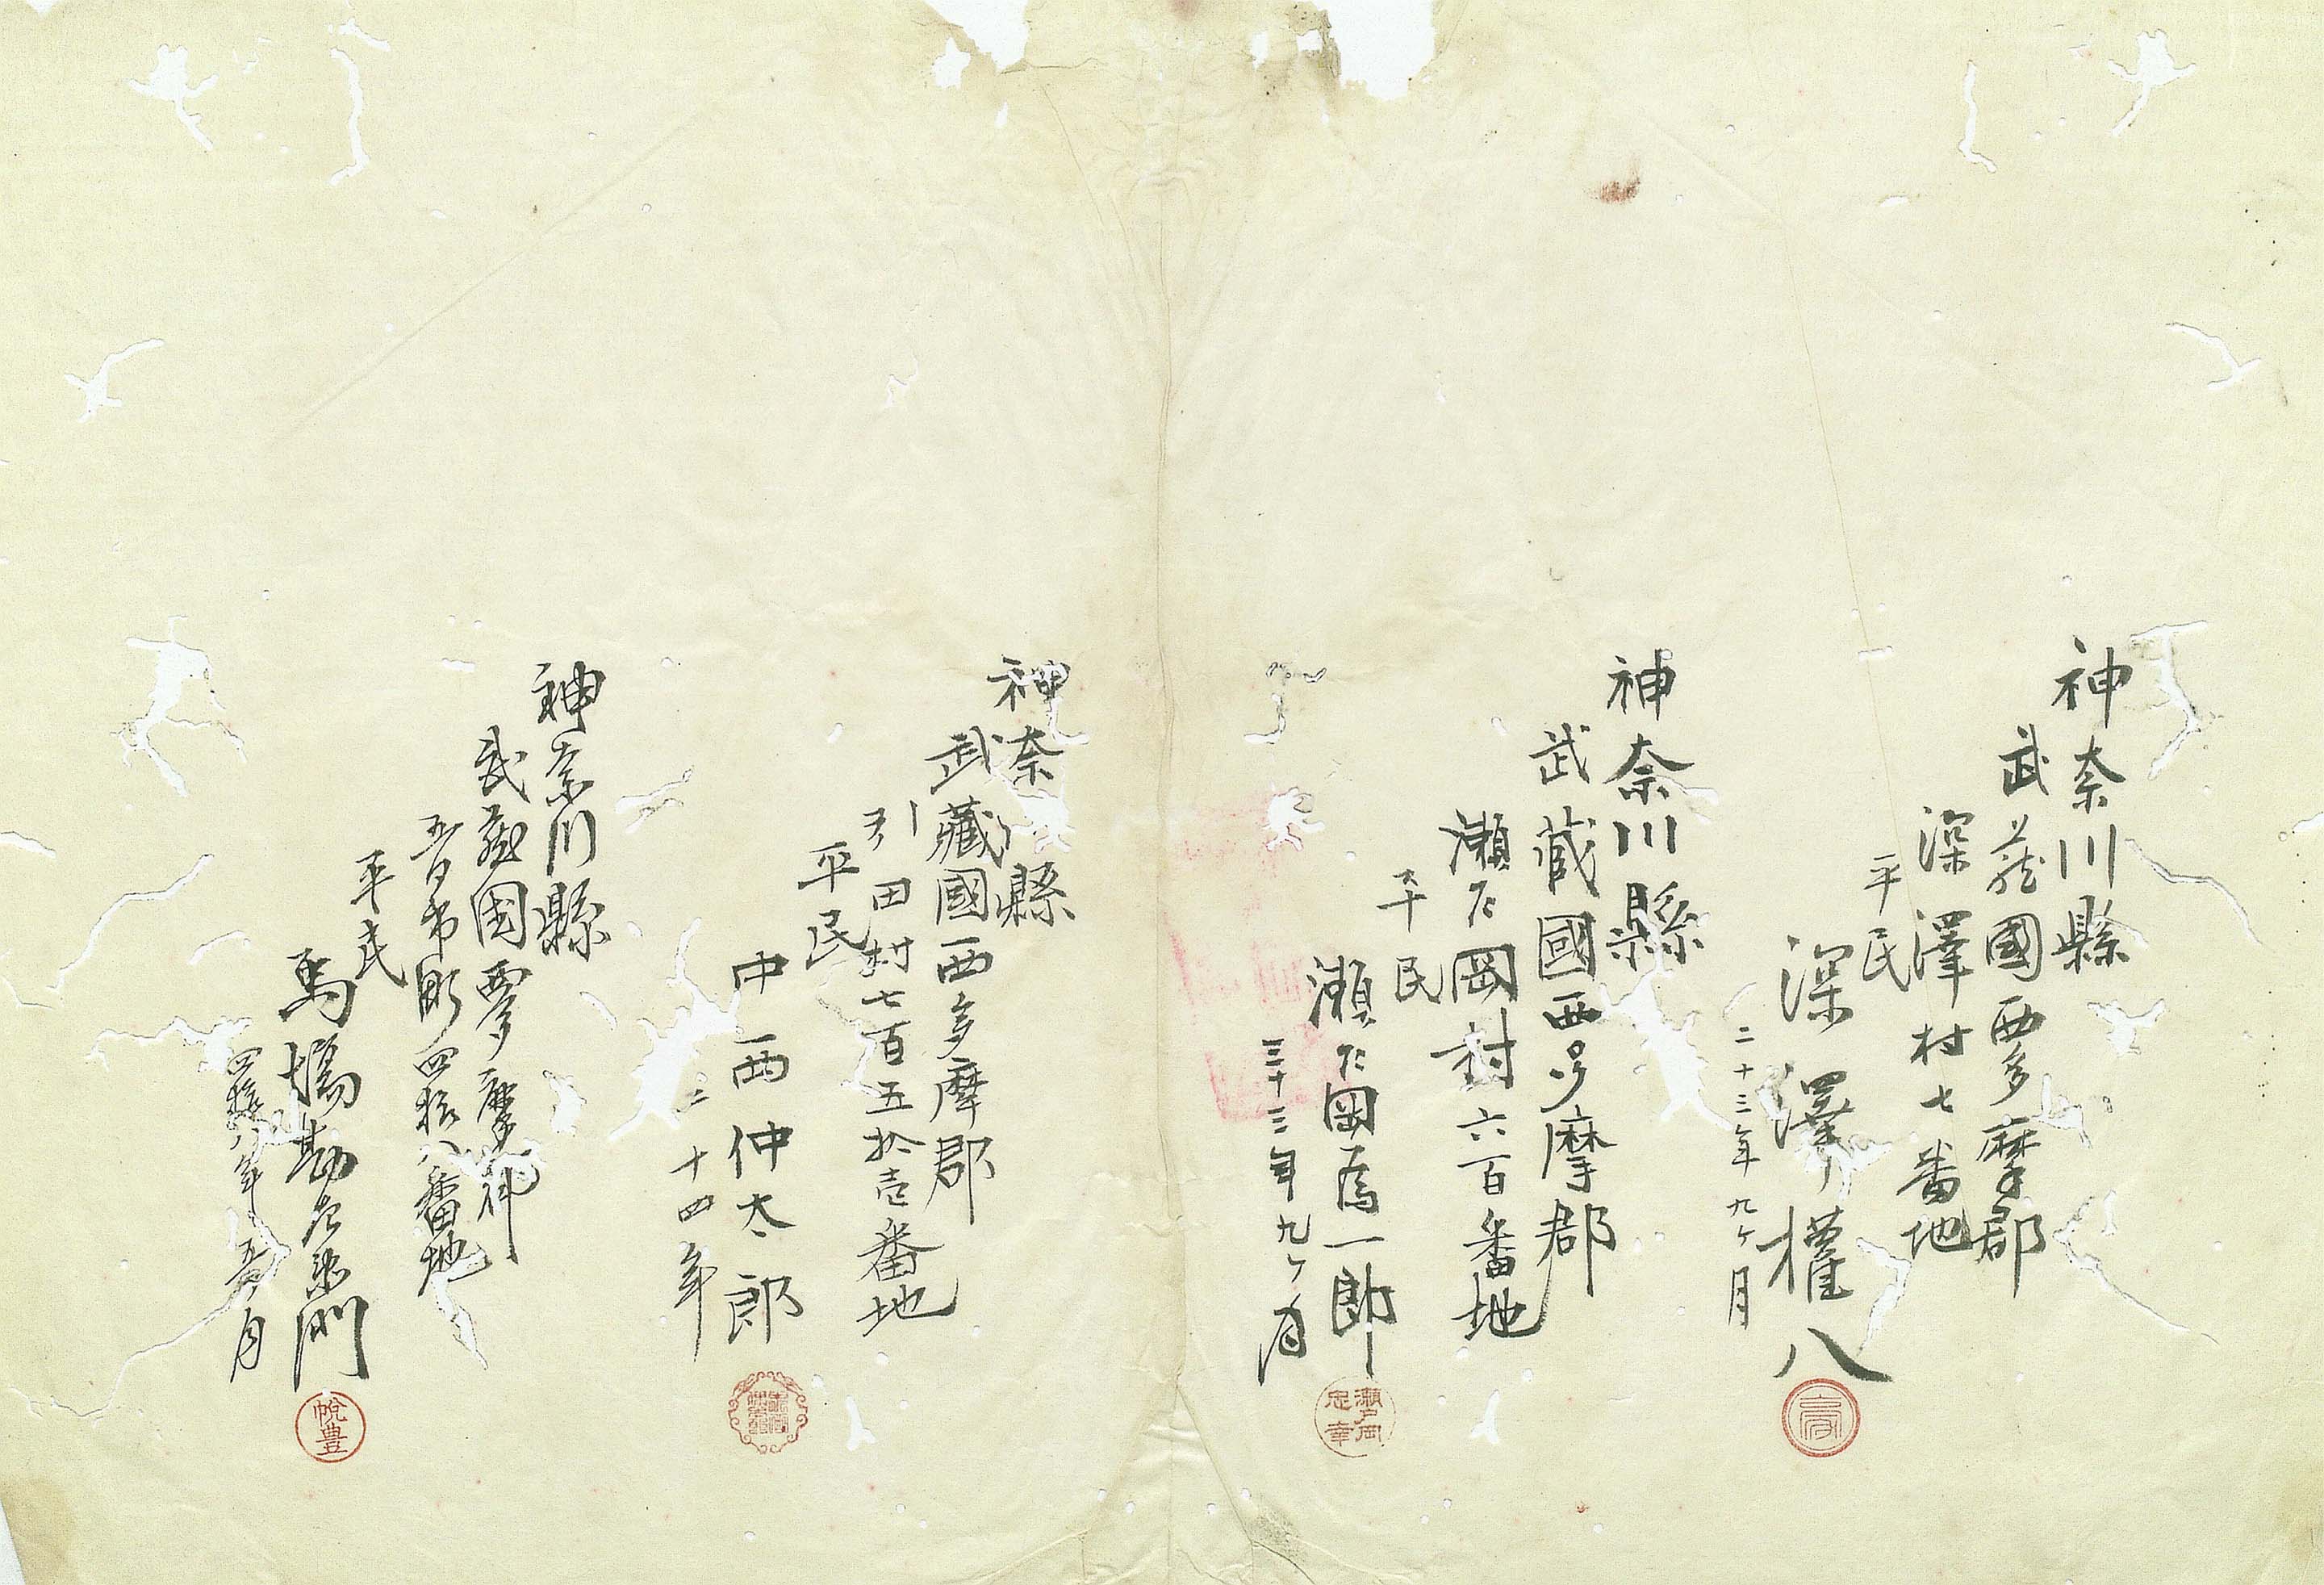 神奈川縣
武藏國西多摩郡
深澤村七番地
平民
深澤權八
二十三年九ヶ月
神奈川縣
武蔵國西多摩郡
瀬戸岡村六百番地
平民
瀬戸岡為一郎
三十三年九ヶ月
瀬戸岡
忠幸
神奈川縣
武藏國西多摩郡
引田村七百五拾壱番地
平民
中西仲太郎
二十四年
神奈川縣
武蔵國西多摩郡
五日市町四拾八番地
平民
馬場勘左衛門
四拾八年五ヶ月
豊